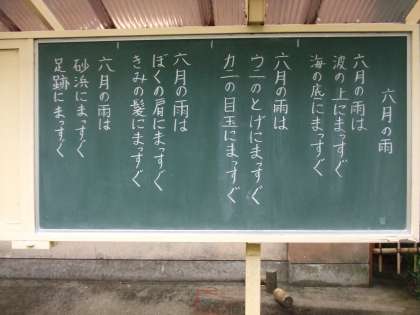 六月の雨
六月の雨は
波の上にまっすぐ
海の底にまっすぐ
六月の雨は
ウニのとげにまっすぐ
カニの目玉にまっすぐ
六月の雨は
ぼくの肩にまっすぐ
きみの髪にまっすぐ
六月の雨は
砂浜にまっすぐ
足跡にまっすぐ